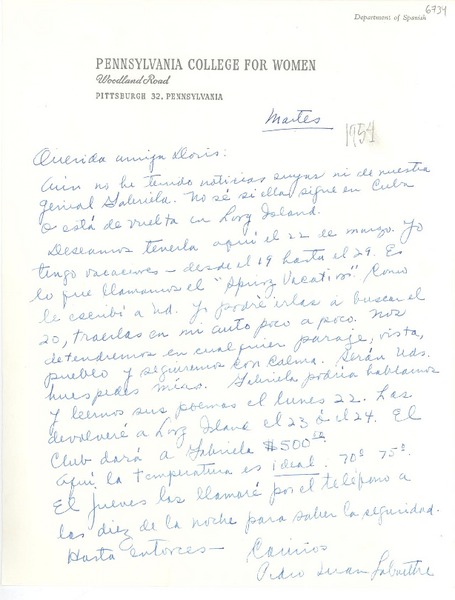 6734
Department of Spanish
PENNSYLVANIA COLLEGE FOR WOMEN
Woodland Road
PITTSBURGH 32, PENNSYLVANIA
Martes
1954
Querida amiga Doris:
Aún no he tenido noticias suyas ni de nuestra
genial Gabriela. No sé si ella sigue en Cuba
o está de vuelta en Long Island.
Deseamos tenerla aquí el 22 de marzo. Yo
tengo vacaciones – desde el 19 hasta el 29. Es
lo que llamamos el "Spring Vacation". Como
le escribí a Ud. yo podré irlas a buscar el
20, traerlas en mi auto poco a poco. Nos
detendremos en cualquier paraje, vista,
pueblo y seguiremos con calma. Serán Uds.
huéspedes míos. Gabriela podría hablarnos
y leernos sus poemas el lunes 22. Las
devolveré a Long Island el 23 ó el 24. El
Club dará a Gabriela $500
Aquí la temperatura es ideal. 70° 75°.
El jueves las llamaré por el teléfono a
las diez de la noche para saber la seguridad.
Hasta entonces –
Cariños
Pedro Juan Labarthe